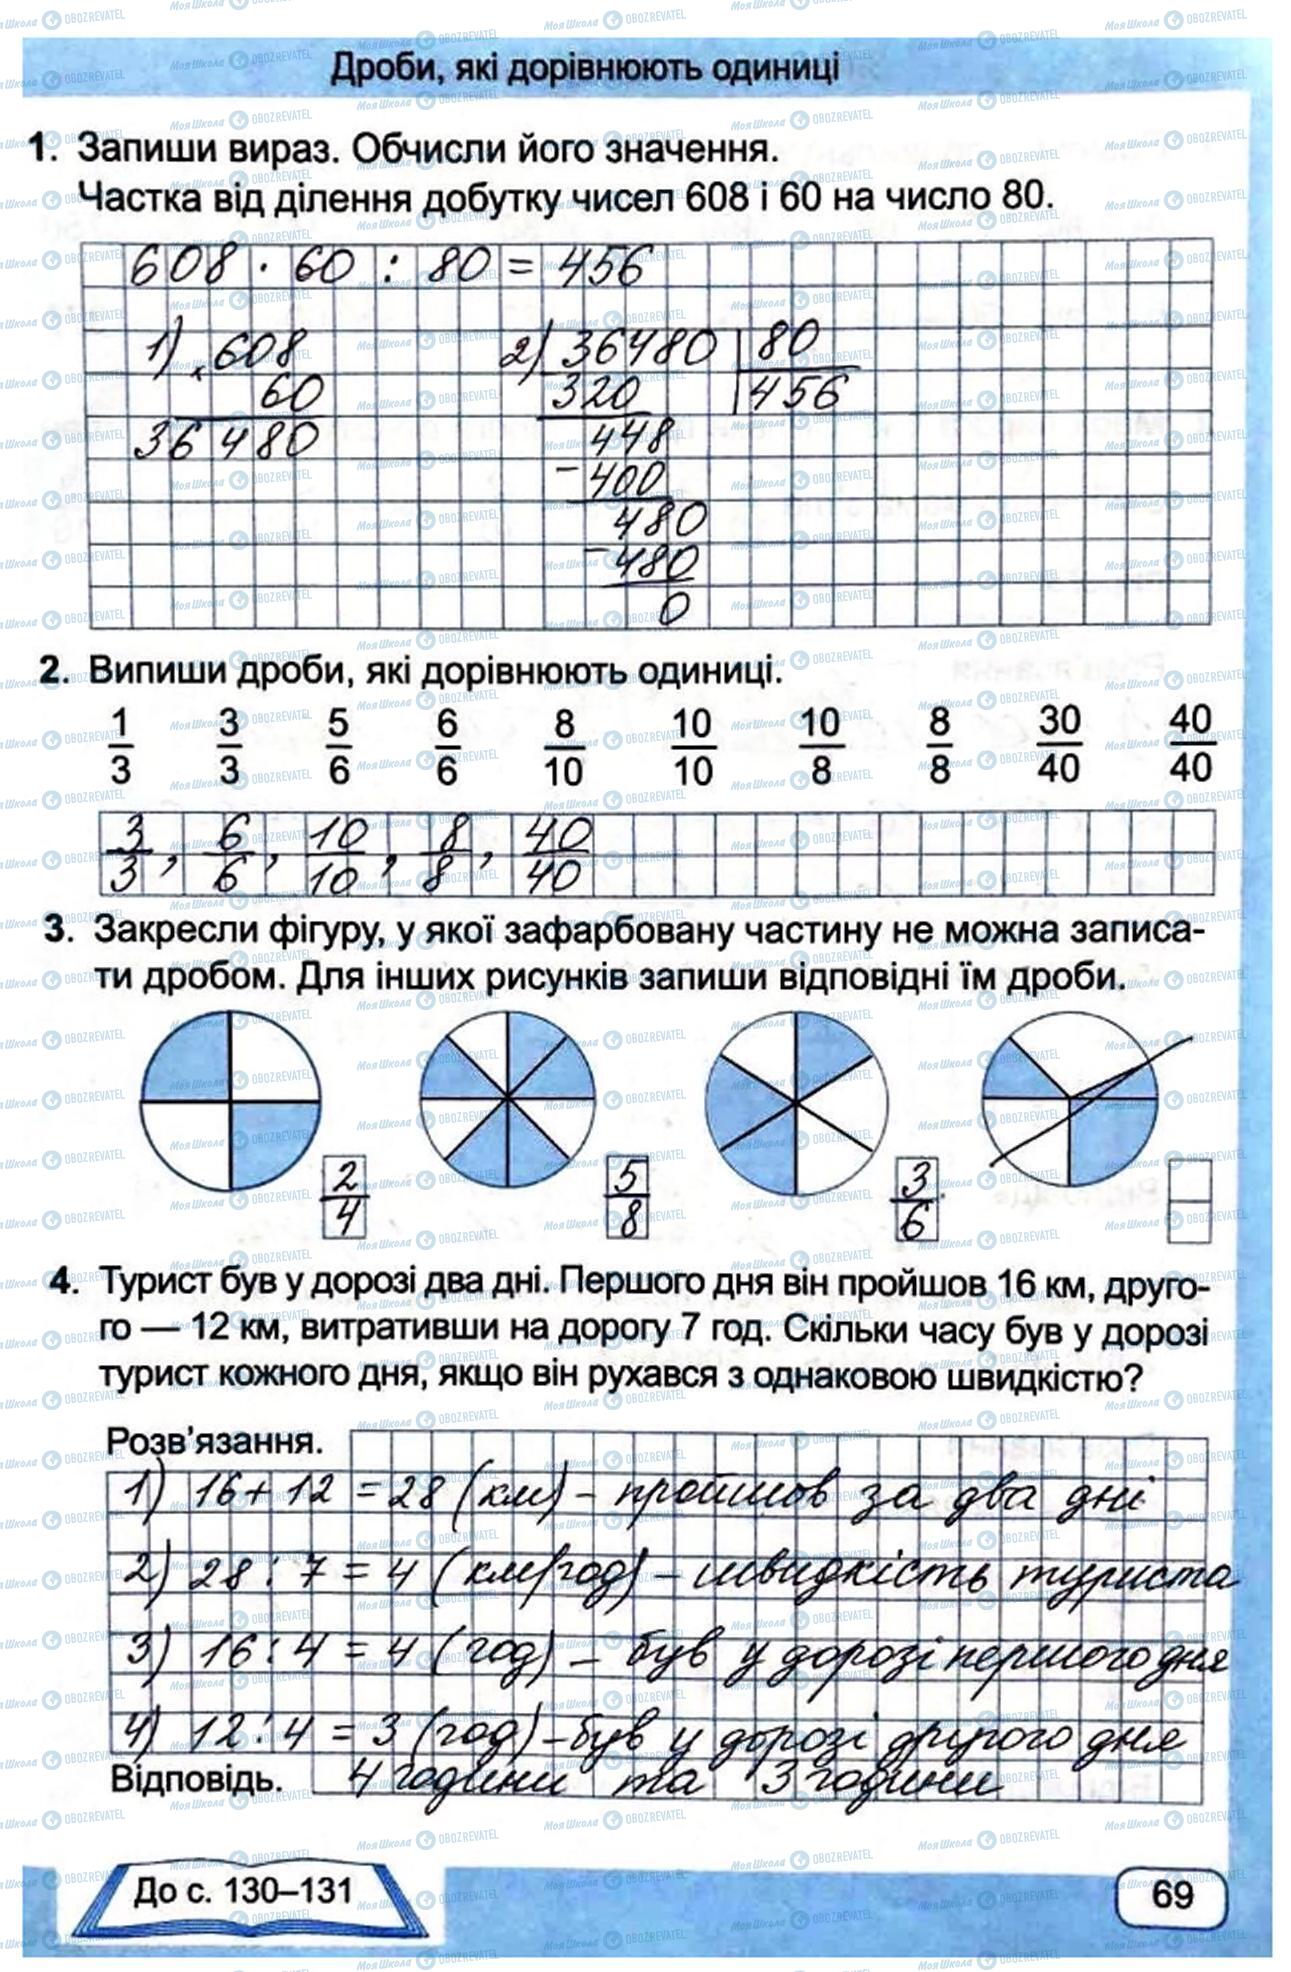 Дроби, які дорівнюють одиниці
1. Запиши вираз. Обчисли його значення.
Частка від ділення добутку чисел 608 і 60 на число 80.
608 · 60 : 80 = 456
1) × 608 2) 36480 | 80
60 320 | 456
36 480 448
- 400
480
- 480
0
2. Випиши дроби, які дорівнюють одиниці.
1/3 3/3 5/6 6/6 8/10 10/10 10/8 8/8 30/40 40/40
3/3, 6/6, 10/10, 8/8, 40/40
3. Закресли фігуру, у якої зафарбовану частину не можна записа-
ти дробом. Для інших рисунків запиши відповідні їм дроби.
2/4 5/8 3/6
4. Турист був у дорозі два дні. Першого дня він пройшов 16 км, друго-
го — 12 км, витративши на дорогу 7 год. Скільки часу був у дорозі
турист кожного дня, якщо він рухався з однаковою швидкістю?
Розв'язання.
1) 16 + 12 = 28 (км) - пройшов за два дні
2) 28 : 7 = 4 (км/год) - швидкість туриста
3) 16 : 4 = 4 (год) - був у дорозі першого дня
4) 12 : 4 = 3 (год) - був у дорозі другого дня
Відповідь. 4 години та 3 години
До с. 130–131
69
МояШкола OBOZREVATEL